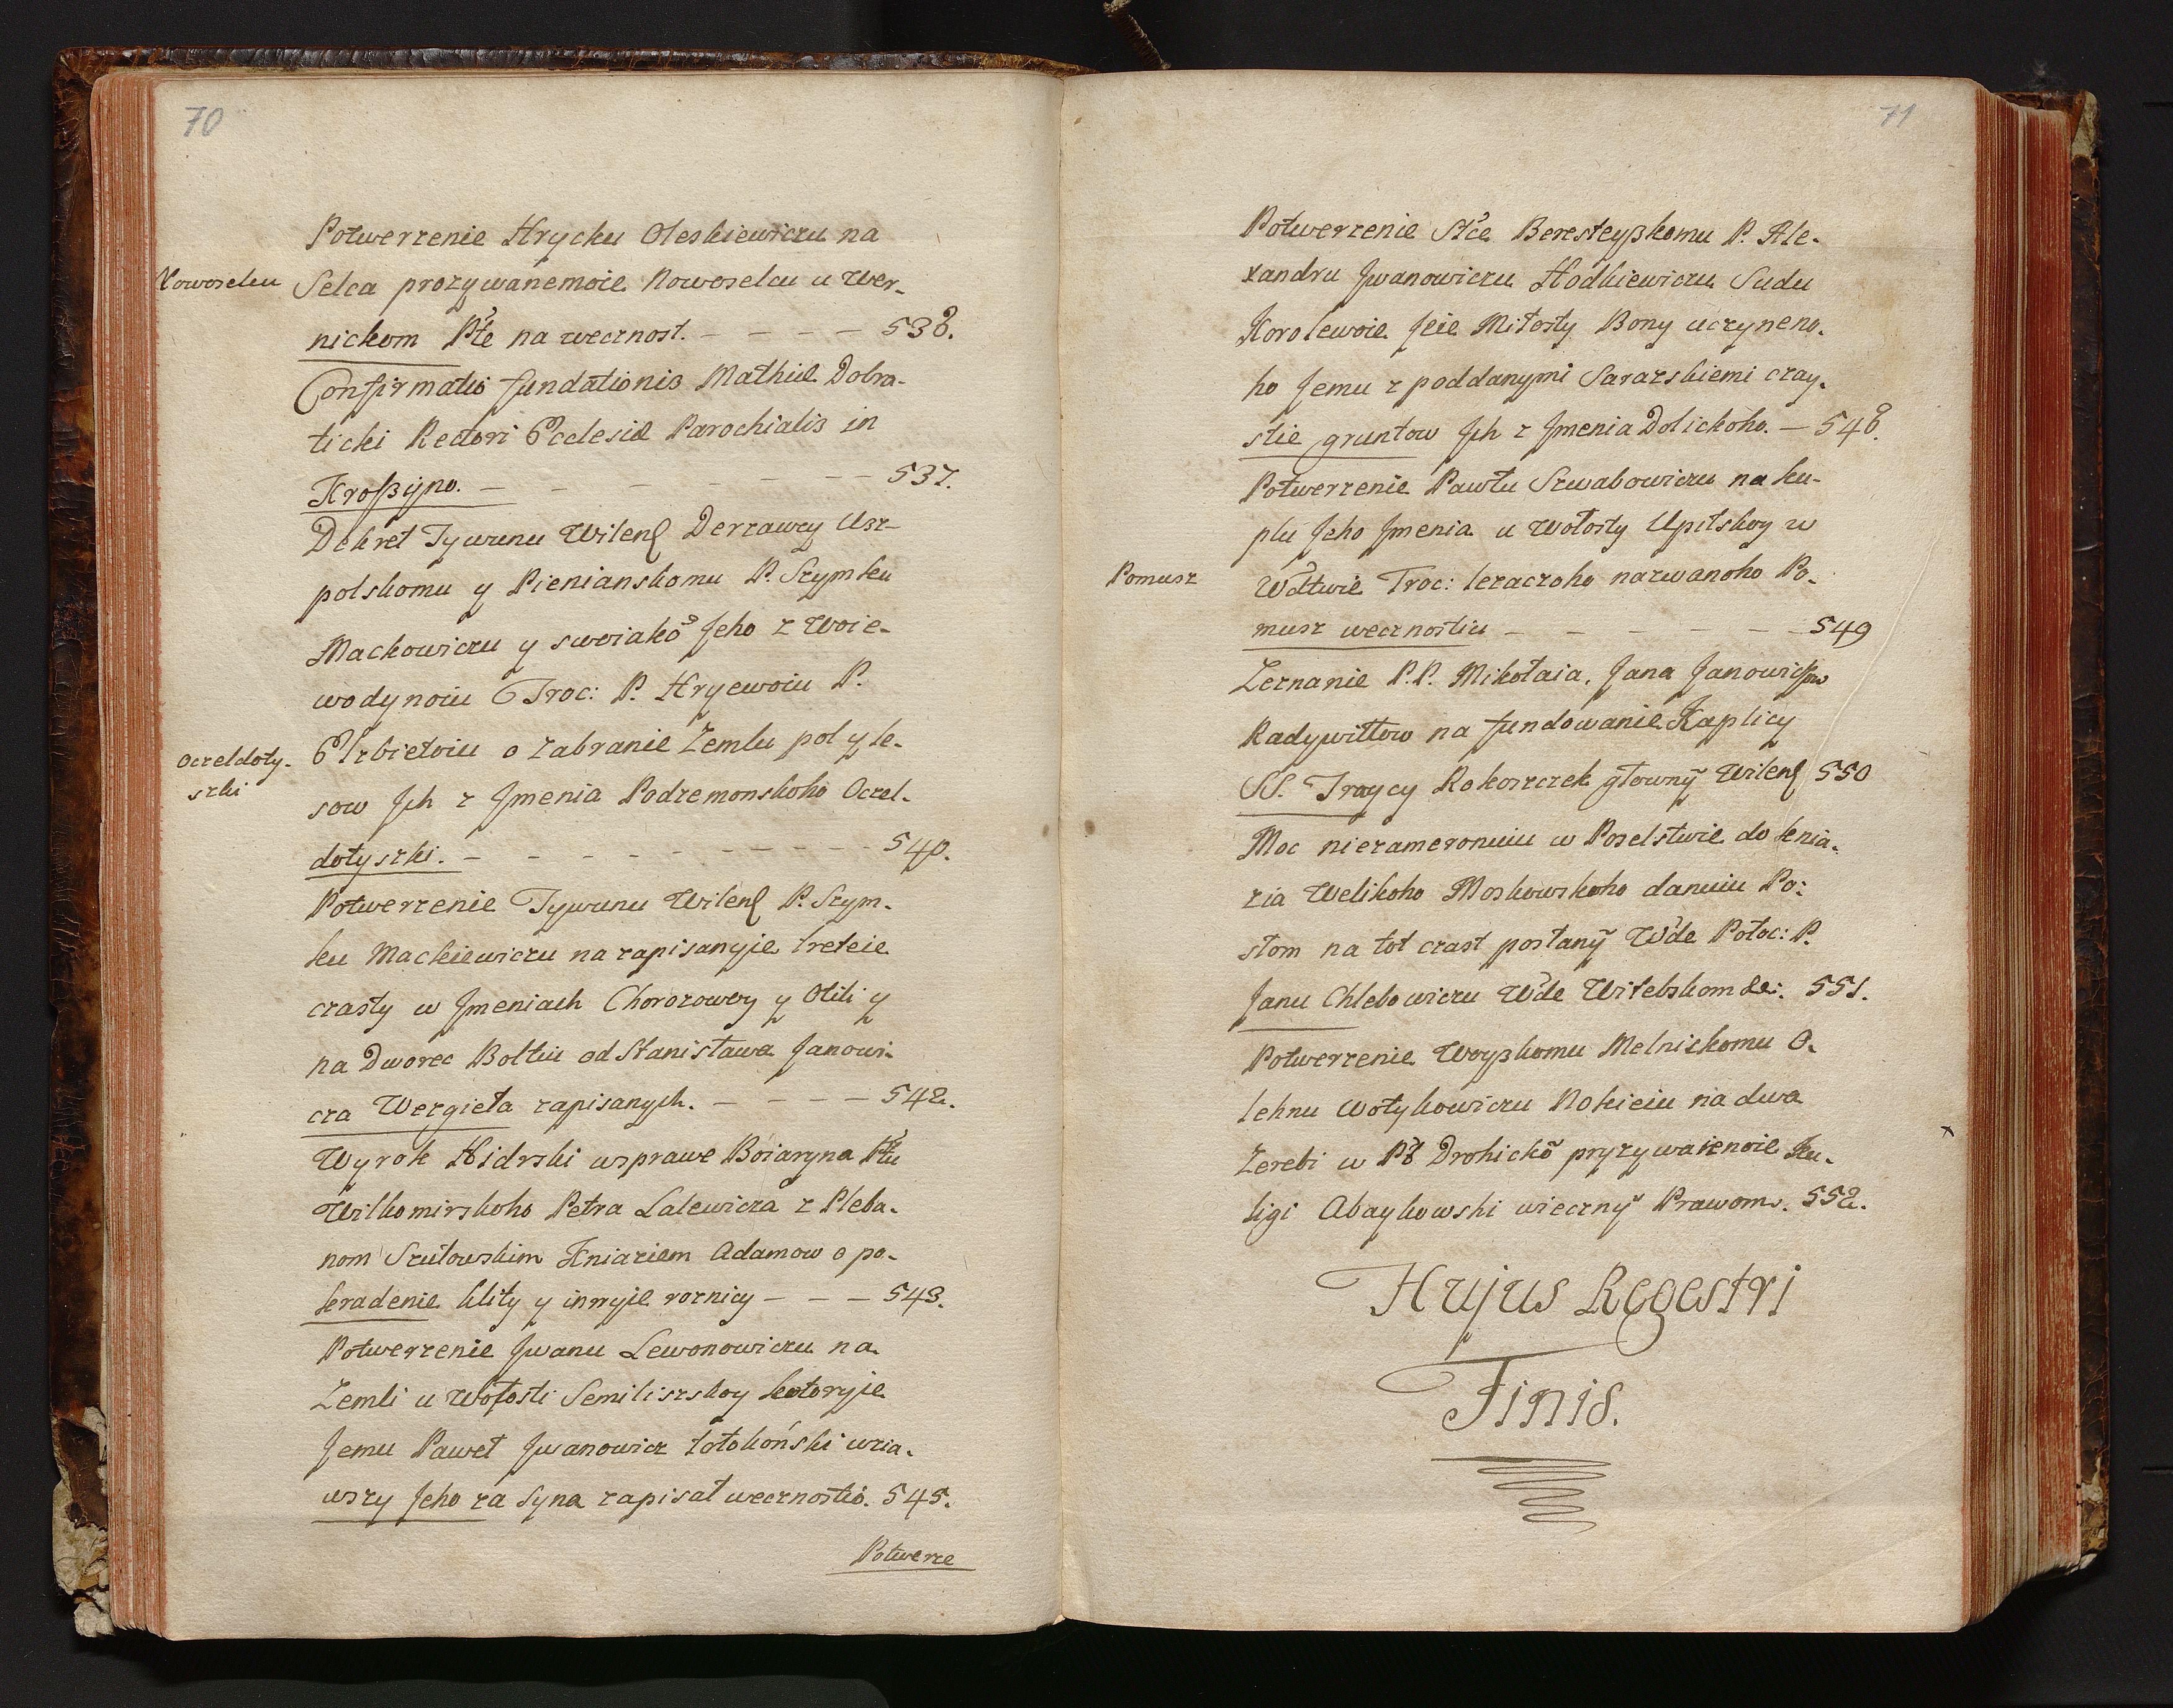 70
Potwerzenie Hrycku Oleskiewiczu na
Nowoselcu
Selca prozywanemoie Nowoselcu u Wer-
nickom Pťe na wecznost. - - - - 538.
Confirmatio fundationis Mathiæ Dobra-
ticki Rectori Ecclesiæ Parochialis in
Kroßÿno. - - - - - - - 537.
Dekret Tywunu Wilenſ Derzawcy Usz-
polskomu y Pienianskomu P. Szymku
Mackowiczu y swoiakõ Jeho z Woie-
wodynoiu Troc: P. Hryewoiu P.
Oczeldoty-
szki
Elzbietoiu o zabranie Zemlu pol y le-
sow Jch z Jmenia Podzemonskoho Oczel-
dotyszki. - - - - - - - - - 540.
Potwerzenie Tywunu Wilenſ P. Szym-
ku Mackiewiczu na zapisanyje treteie
czasty w Jmeniach Chorozowey y Olili y
na Dworec Boltiu od Stanisława Janowi-
cza Wezgieta zapisanych. - - - - 542.
Wyrok Hidrski w sprawe Boiaryna Pťu
Wilkomirskoho Petra Lalewicza z Pleba-
nom Szutowskim Kniaziem Adamow o po-
kradenie klity y innyje roznicy - - - 543.
Potwerzenie Jwanu Lewonowiczu na
Zemli u Wołosti Semiliszskoy kotoryje
Jemu Paweł Jwanowicz Łotokoński wzia-
wszy Jeho za Syna zapisał wecznostiõ. 545.
Potwerze
71
Potwerzenie Sťce Beresteyßkomu P. Ale-
xandru Jwanowiczu Hodkiewiczu Sudu
Korolewoie Jeie Miłosty Bony uczyneno-
ho Jemu z poddanymi Sarazskiemi czay-
stie gruntow Jch z Jmenia Dolickoho. - 548.
Potwerzenie Pawłu Szwabowiczu na ku-
plu Jeho Jmenia u Wołosty Upitskoy w
Pomusz
Wdtwie Troc: lezaczoho nazwanoho Po-
musz wecznostiu - - - - - - 549
Zeznanie P.P. Mikołaia, Jana Janowiczow
Radywiłłow na fundowanie Kaplicy
SS. Traycy Kokoszczek głownỹ Wilenſ 550
Moc niezameronuiu w Poselstwie do knia-
zia Welikoho Moskowskoho danuiu Po-
słom na tot czast posłanỹ Wde Połoc: P.
Janu Chlebowiczu Wde Witebskom &c: 551.
Potwerzenie Woyßkomu Melnickomu O-
lehnu Wotykowiczu Nokieiu na dwa
Zerebi w Pť Drohickõ pryzywaienoie Ku-
ligi Abaykowski wiecznỹ Prawom. 552.
Hujus Regestri
Finis.